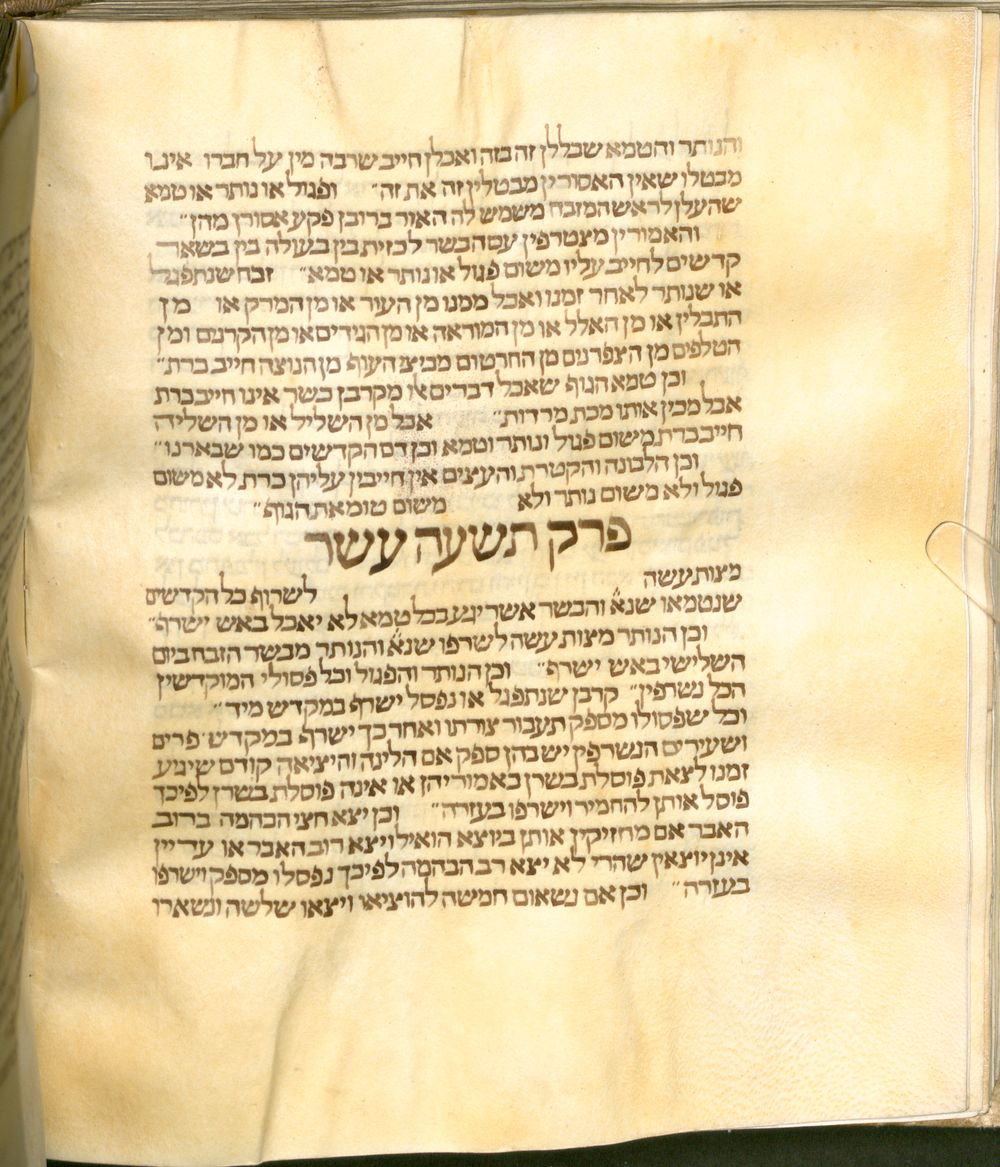 והנותר והטמא שבללן זה בזה ואכלן חייב שרבה מין על חברו אינו
מבטלו שאין האסורין מבטלין זה את זה״ ופגול או נותר או טמא
שהעלן לראש המזבח משמש לה האור ברובן פקע אסורן מהן״
והאמורין מצטרפין עם הבשר לכזית בין בעולה בין בשאר
קדשים לחייב עליו משום פגול או נותר או טמא״ זבח שנתפגל
או שנותר לאחר זמנו ואכל ממנו מן העור או מן המרק או מן
התבלין או מן האלל או מן המוראה או מן הגידים או מן הקרנים ומן
הטלפים מן הצפרנים מן החרטום מביצי העוף מן הנוצה חייב כרת״
וכן טמא הגוף שאכל דברים אלו מקרבן כשר אינו חייב כרת
אבל מכין אותו מכת מרדות״ אכל מן השליל או מן השליה
חייב כרת משום פגול ונותר וטמא וכן דם הקדשים כמו שבארנו״
וכן הלבונה והקטרת והעצים אין חייבין עליהן כרת לא משום
פגול ולא משום נותר ולא משום טומאת הגוף״
פרק תשעה עשר
מצות עשה
לשרוף כל הקדשים
שנטמאו שנא׳ והבשר אשר יגע בכל טמא לא יאכל באש ישרף״
וכן הנותר מצות עשה לשרפו שנא׳ והנותר מבשר הזבח ביום
השלישי באש ישרף״ וכן הנותר והפגול וכל פסולי המוקדשין
הכל נשרפין״ קרבן שנתפגל או נפסל ישרף במקדש מיד״
וכל שפסולו מספק תעבור צורתו ואחר כך ישרף במקדש׳ פרים
ושעירים הנשרפין יש בהן ספק אם הלינה והיציאה קודם שיגיע
זמנו לצאת פוסלת בשרן כאמוריהן או אינה פוסלת בשרן לפיכך
פוסל אותן להחמיר וישרפו בעזרה״ וכן יצא חצי הבהמה ברוב
האבר אם מחזיקין אותן כיוצא הואיל ויצא רוב האבר או עדיין
אינן יוצאין שהרי לא יצא רב הבהמה לפיכך נפסלו מספק וישרפו
בעזרה״ וכן אם נשאום חמשה להוציאו ויצאו שלשה ונשארו